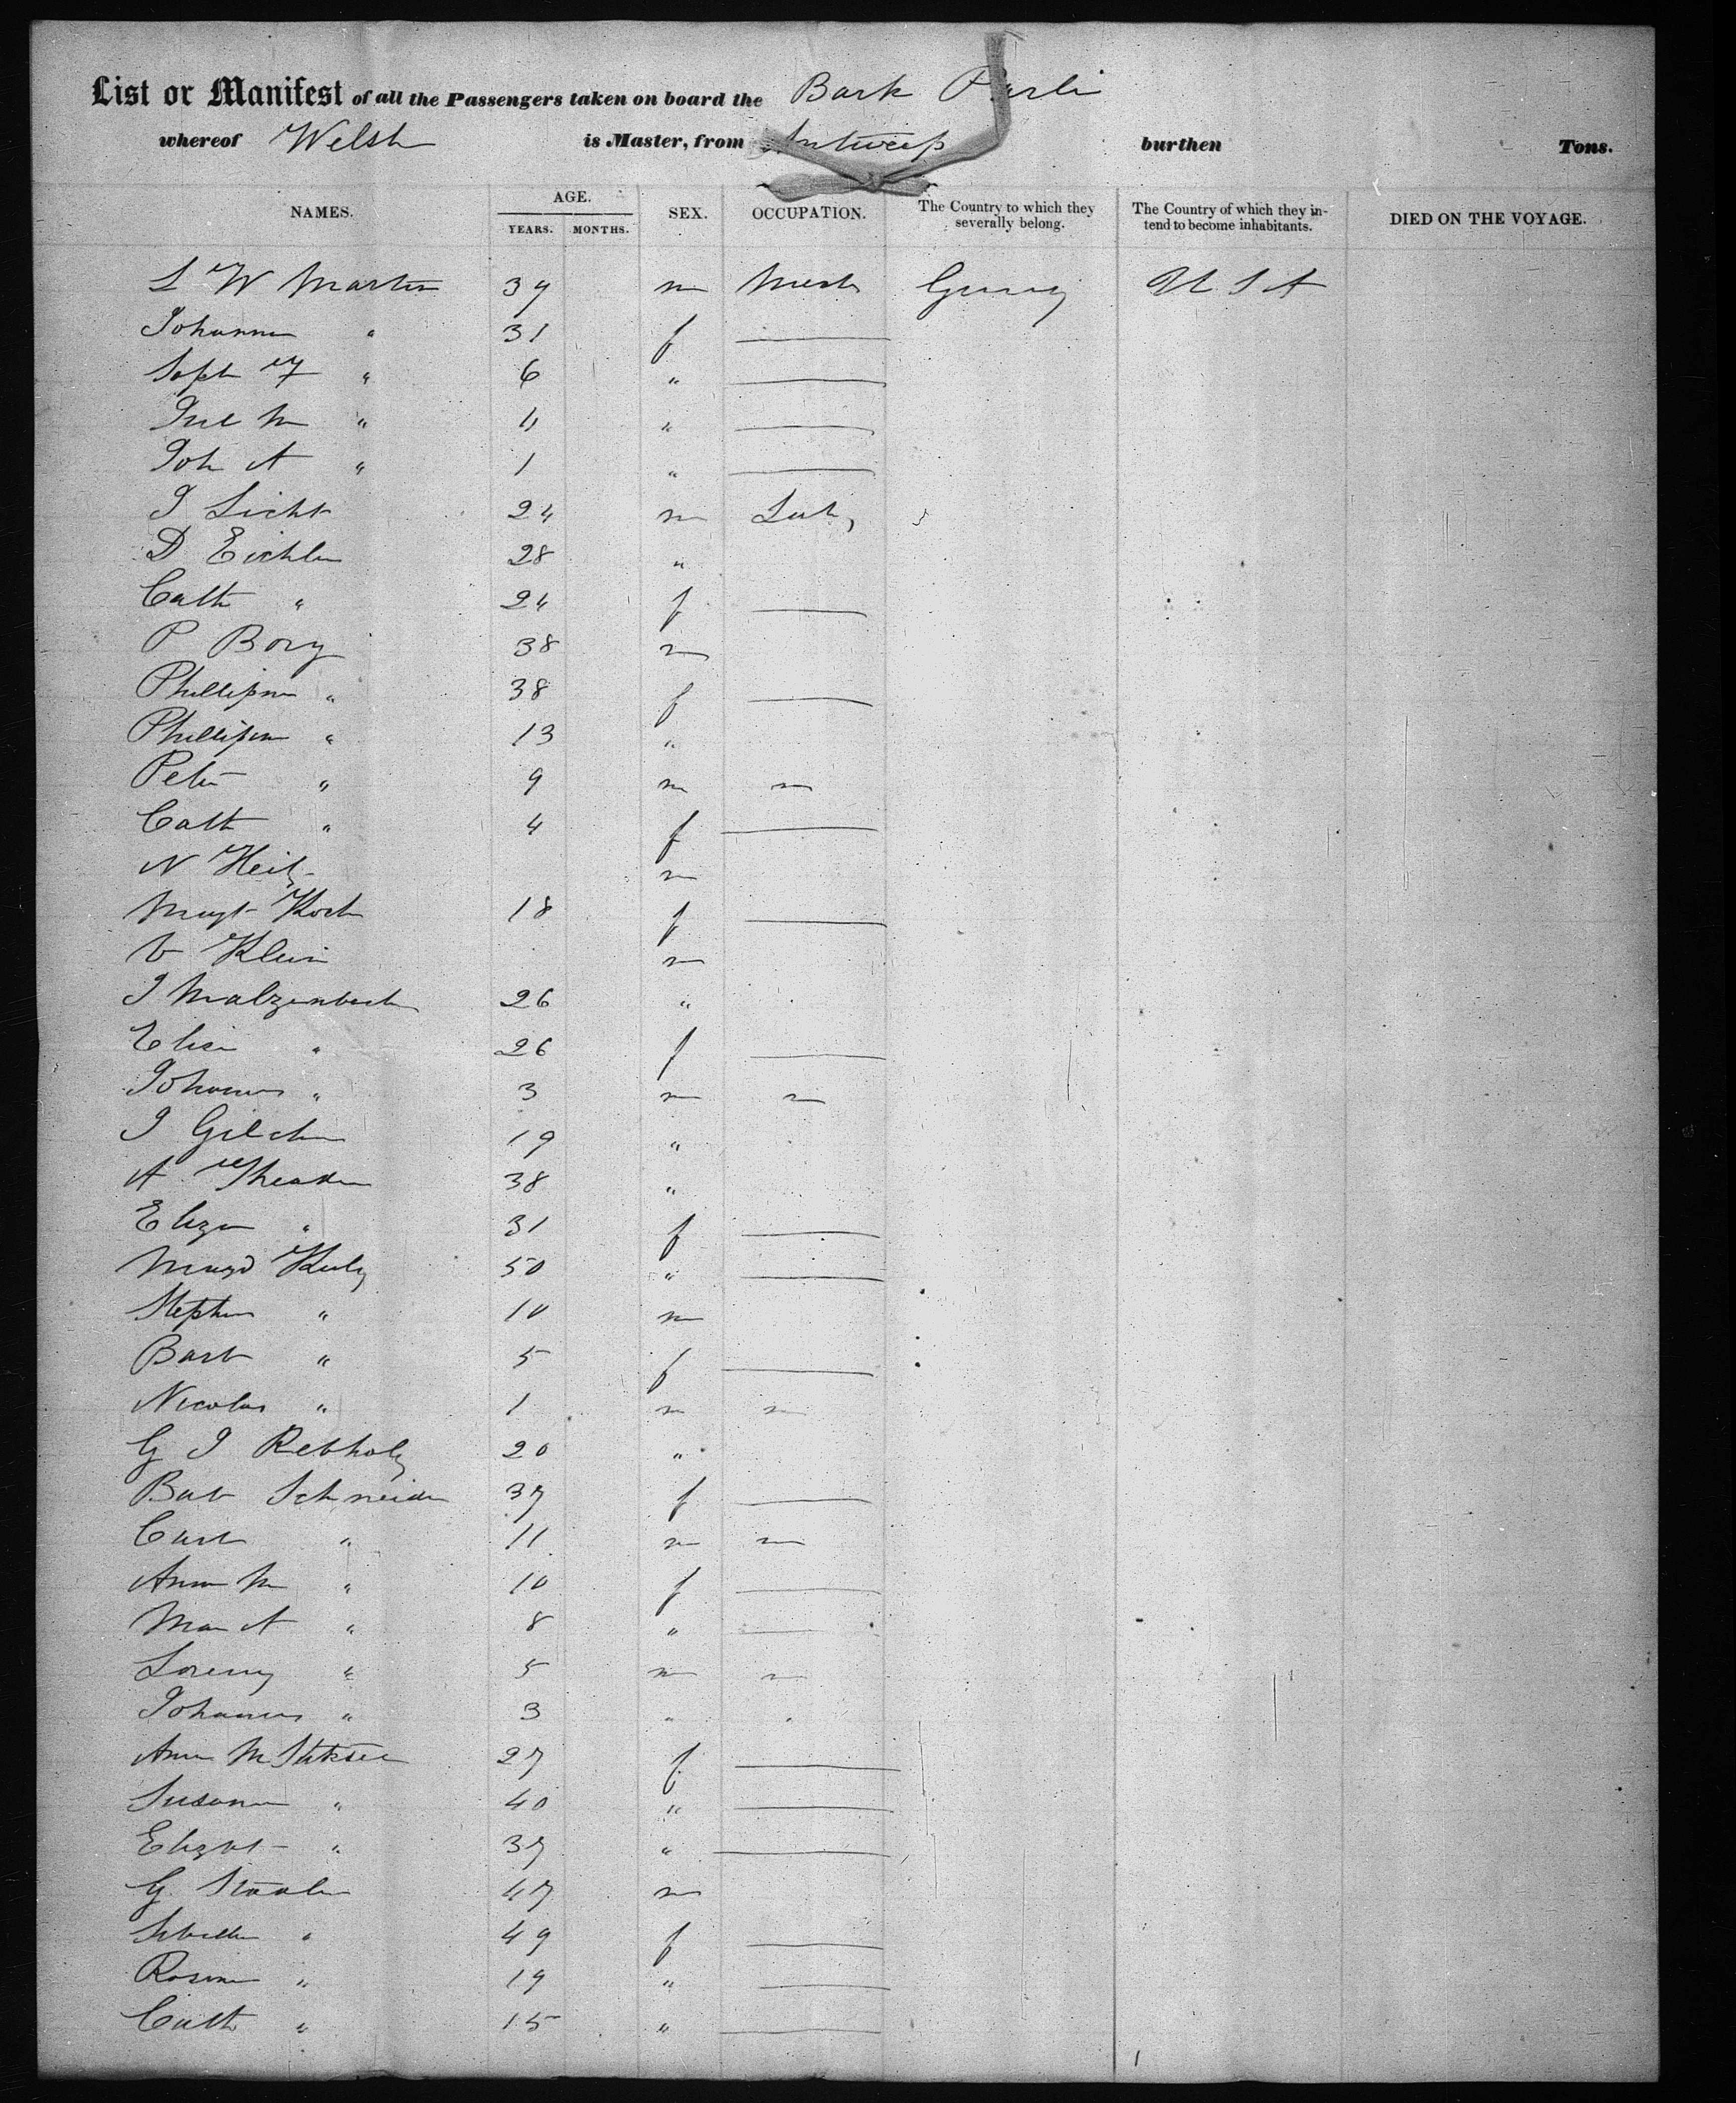 List or Manifest of all the Passengers taken on board the Bark
whereof Welsh is Master, from Antwerp burthen Tons.
NAMES. AGE. YEARS. MONTHS. SEX. OCCUPATION. The Country to which they severally belong. The Country of which they intend to become inhabitants. DIED ON THE VOYAGE.
L W Martin 39 m Germy U S A
Johanna " 31 f
Soph F " 6 "
M " "
Joh A " 1 "
J Licht 24 m
D Eichler 28 "
Cath " 24 f
P Borg 38 m
Phillipine " 38 f
Phillipine " 13 "
Peter " 9 m
Cath " 4 f
N Heitz m
Margt Koch 18 f
V Klein m
J Malzenbach 26 "
Elise " 26 f
Johannes " 3 m
J 19 "
A 38 "
Eliza " 31 f
50 "
Stephen " 10 m
Barb " 5 f
Nicolas " 1 m
G J Rebholz 20 "
Barb Schneider 37 f
Carl " 11 m
Anna M " 10 f
Mar A " 8 "
Lorenz " 5 m
Johannes " 3 "
Anna M 27 f
Susanna " 40 "
Elizbt " 37 "
G. 47 m
" 49 f
Rosina " 19 "
Cath " 15 "